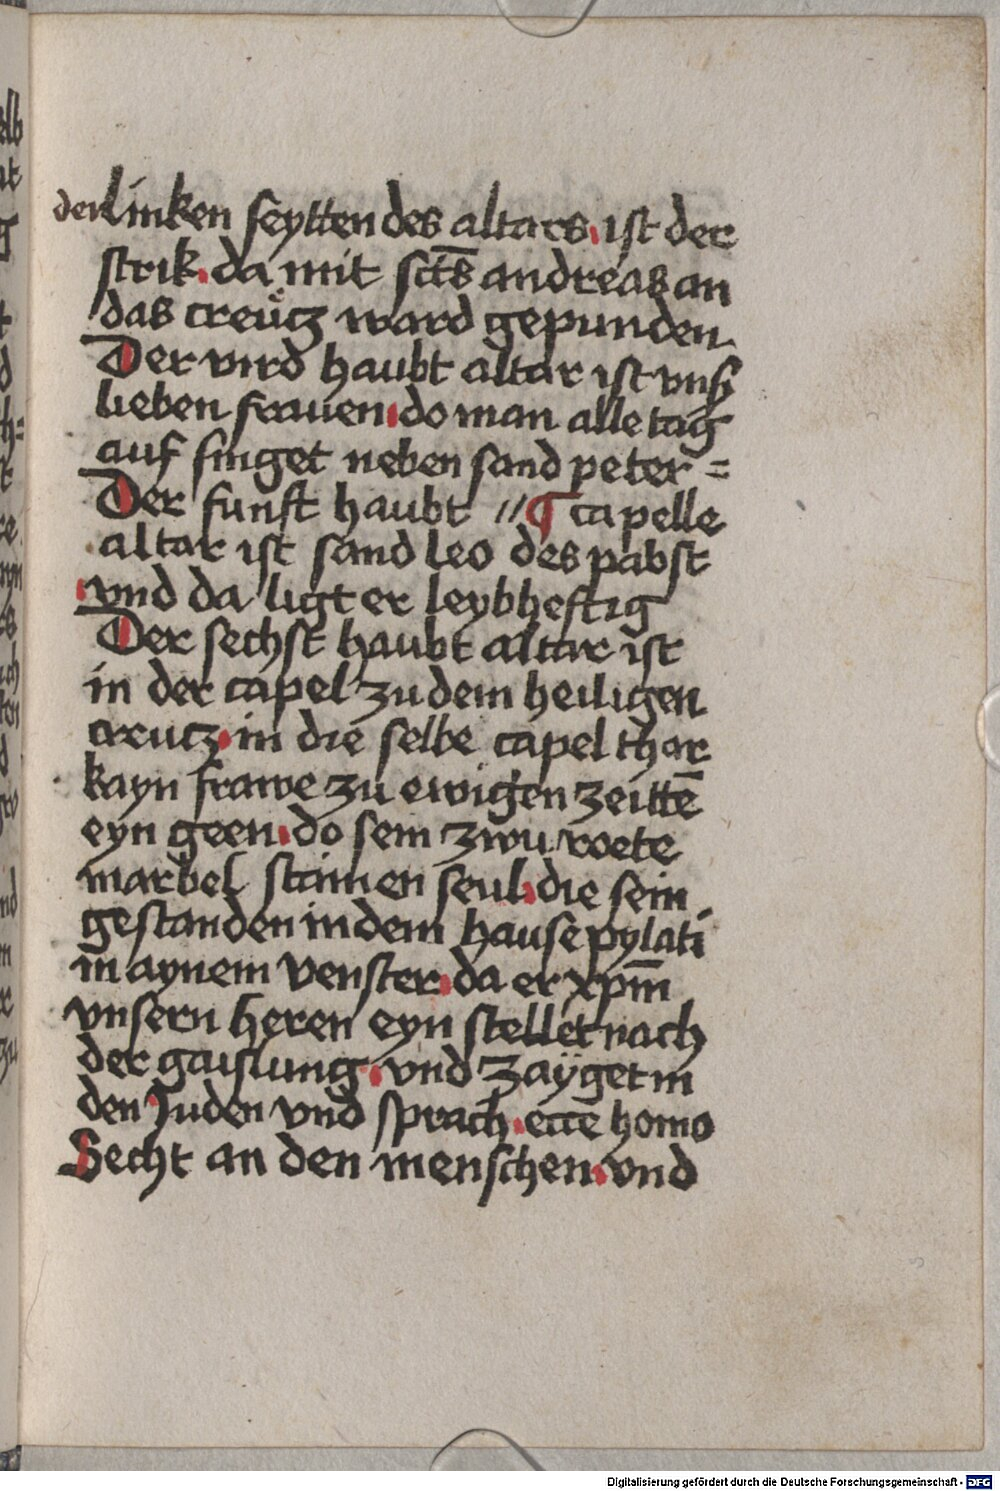 der linken seytten des altars. ist der
strik. da mit sct̄s andreas an
das creücz ward gepunden
Der vird haubt altar ist vnß
lieben frauen. do man alle tag
auf singet neben sand peter =
Der funft haubt //¶ capelle
altar ist sand leo des pabst
vnd da ligt er leybheftig
Der sechst haubt altar ist
in der capel zu dem heiligen
creutz. in die selbe capel thar
kayn frawe zu ewigen zeittē
eyn geen. do sein zwu roete
marbel stainen seul. die sein
gestanden in dem hause pylati
in aynem venster. da er xpm̄
vnsern heren eyn stellet nach
der gaislung. vnd zayget in
den Juden vnd sprach. ecce homo
Secht an den menschen. vnd
Digitalisierung gefördert durch die Deutsche Forschungsgemeinschaft - DFG